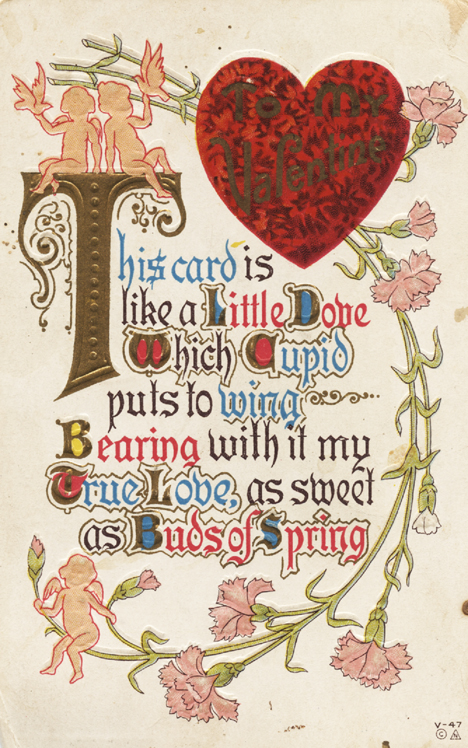 To My
Valentine
This card is
like a Little Dove
Which Cupid
puts to wing
Bearing with it my
True Love, as sweet
as Buds of Spring
V-47
© N